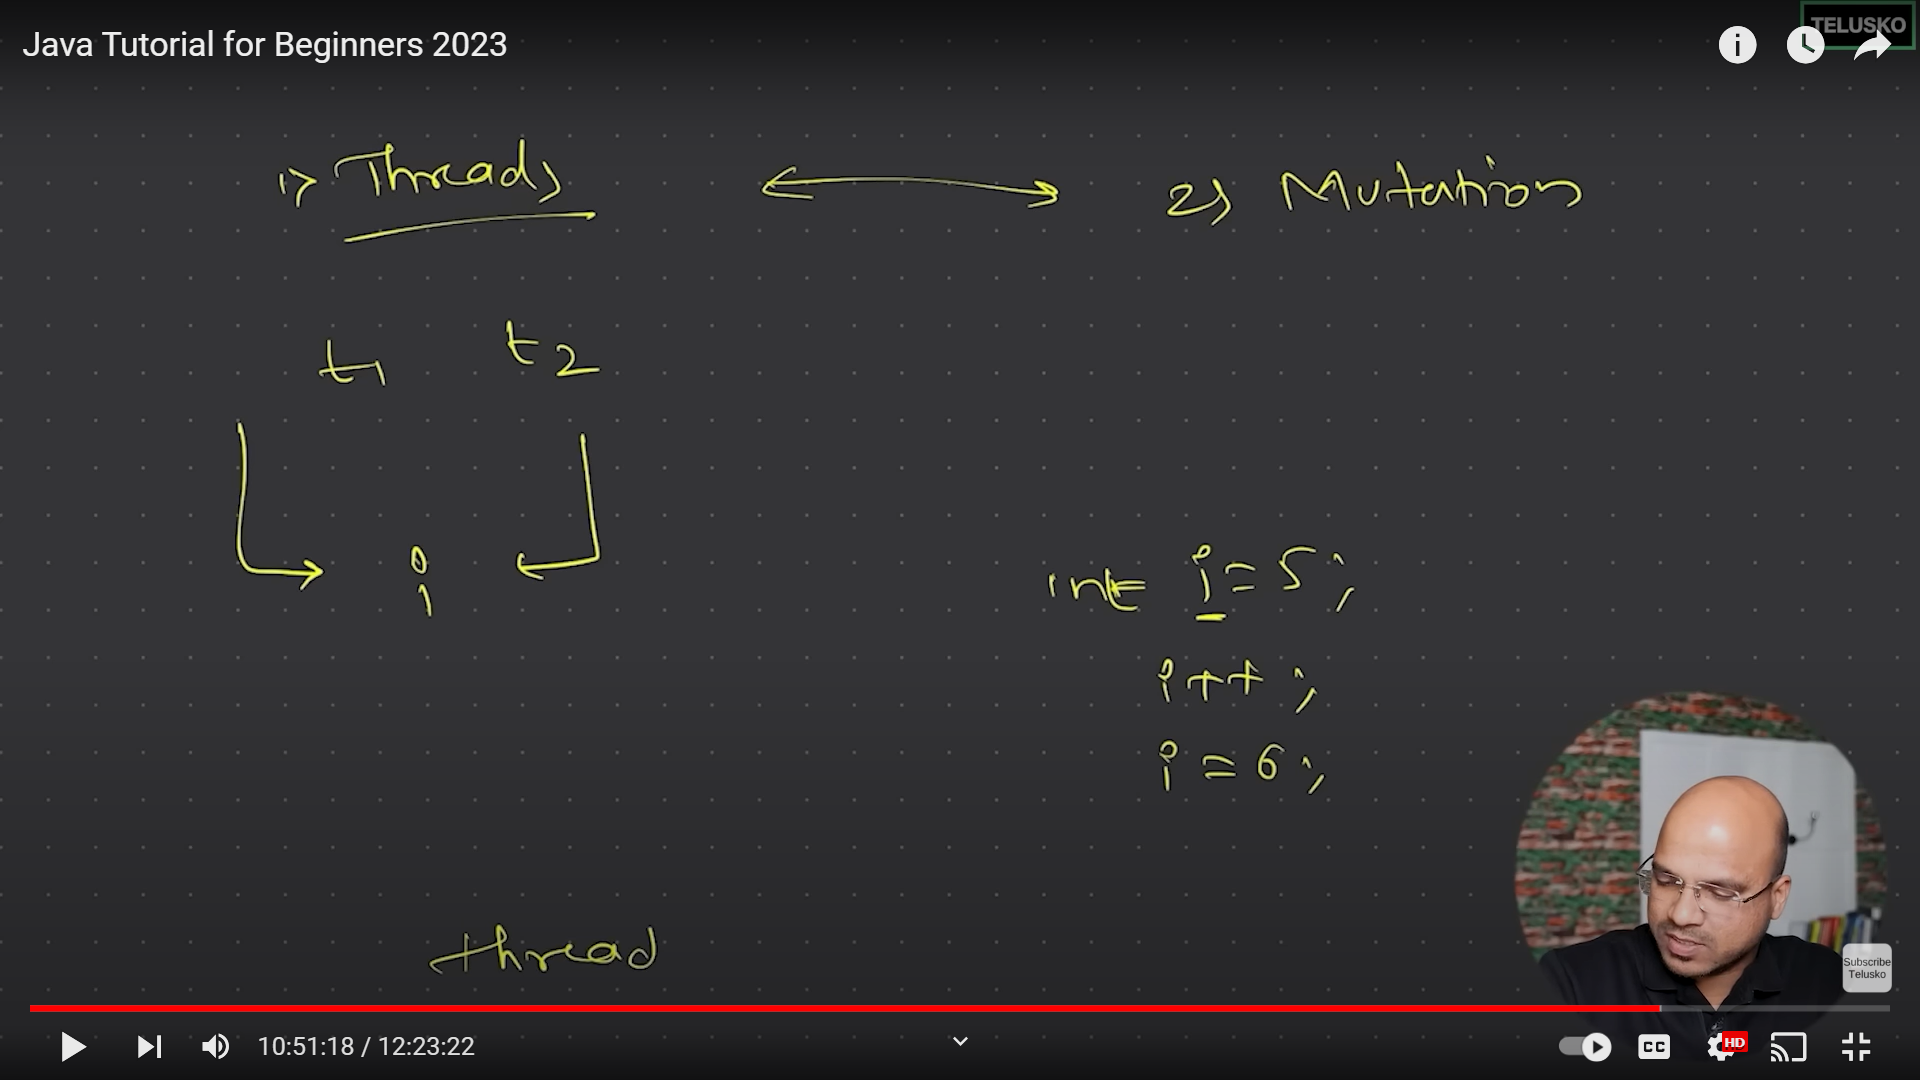 Java Tutorial for Beginners 2023
TELUSKO
1> Threads
2) Mutation
t1 t2
i
int i = 5;
i++;
i = 6;
thread
Subscribe
Telusko
10:51:18 / 12:23:22
CC
HD